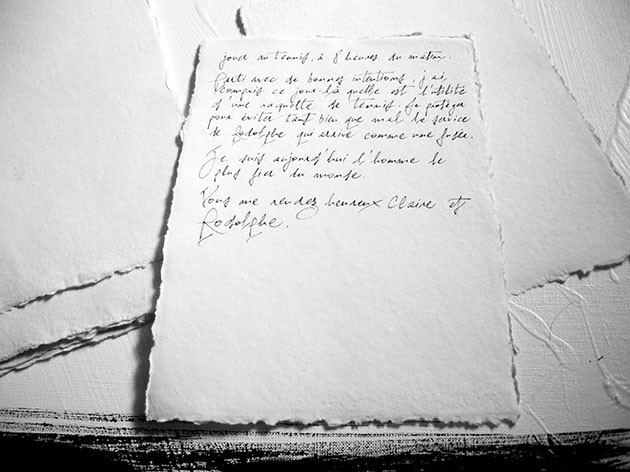 jouer au tennis, à 8 heures du matin.
Parti avec de bonnes intentions, j'ai
compris ce jour-là quelle est l'utilité
d'une raquette de tennis. Se protéger
pour éviter tant bien que mal le service
de Rodolphe qui arrive comme une fusée.
Je suis aujourd'hui l'homme le
plus fier du monde.
Vous me rendez heureux Claire et
Rodolphe.